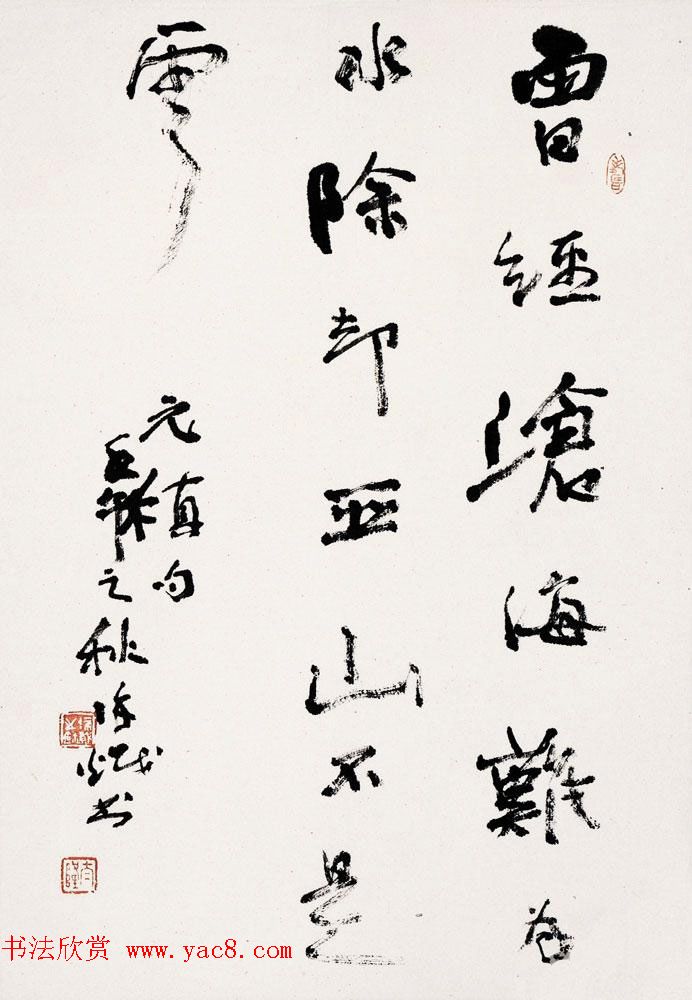 曾經滄海難為
水除却巫山不是
雲
元稹句
之秋
书法欣赏 www.yac8.com